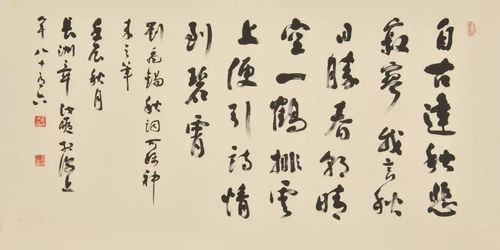 自古逢秋悲
寂寥我言秋
日勝春朝晴
空一鶴排雲
上便引詩情
到碧霄
劉禹錫秋詞可謂神
來之筆
壬辰秋月
長洲章汝奭於海上
年八十有六